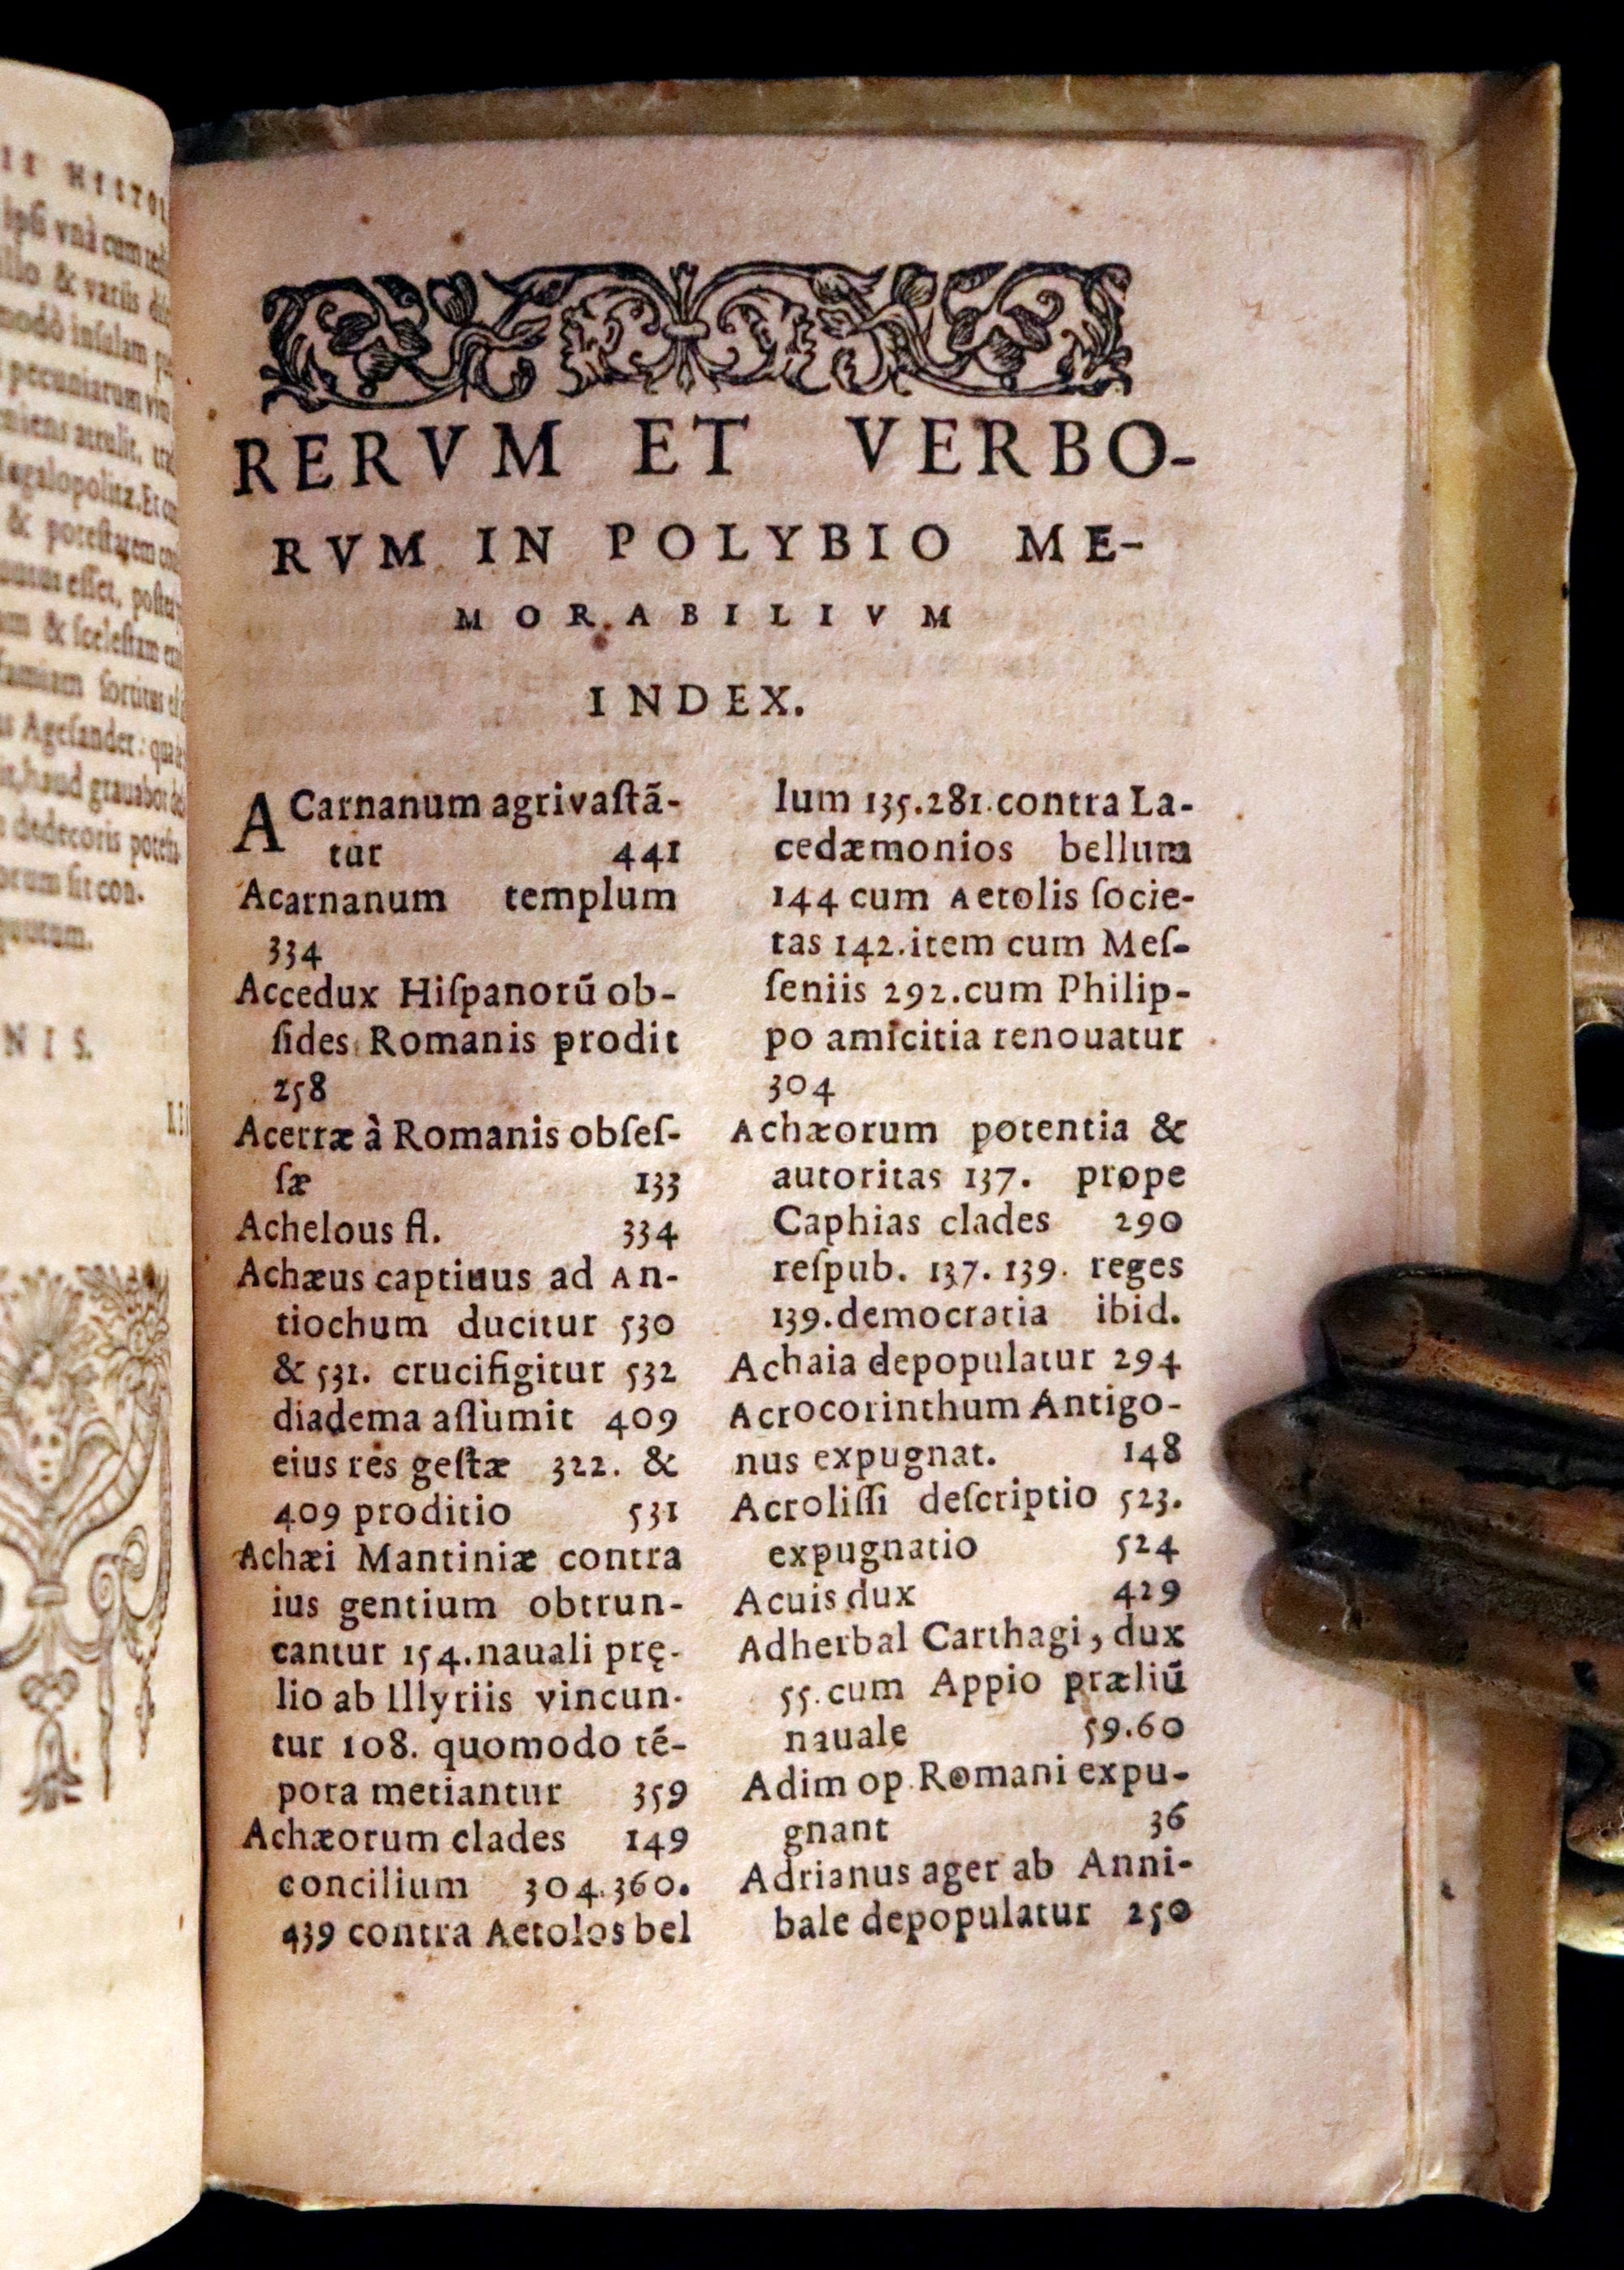 ipsi vnà cum
& variis
modò insulam
pecuniarum
attulit,
& potestatem
esset,
& scelestam
sortitus
Agesander: quæ
haud grauabor
dedecoris
sit con-
NIS.
RERVM ET VERBO-
RVM IN POLYBIO ME-
MORABILIVM
INDEX.
ACarnanum agri vaſtã-
tur 441
Acarnanum templum
334
Accedux Hiſpanorũ ob-
ſides Romanis prodit
258
Acerræ à Romanis obſeſ-
ſæ 133
Achelous fl. 334
Achæus captiuus ad An-
tiochum ducitur 530
& 531. crucifigitur 532
diadema aſſumit 409
eius res geſtæ 322. &
409 proditio 531
Achæi Mantiniæ contra
ius gentium obtrun-
cantur 154.nauali prę-
lio ab Illyriis vincun-
tur 108. quomodo tẽ-
pora metiantur 359
Achæorum clades 149
concilium 304.360.
439 contra Aetolos bel
lum 135.281.contra La-
cedæmonios bellum
144 cum Aetolis ſocie-
tas 142.item cum Meſ-
ſeniis 292.cum Philip-
po amicitia renouatur
304
Achæorum potentia &
autoritas 137. prope
Caphias clades 290
reſpub. 137. 139. reges
139.democratia ibid.
Achaia depopulatur 294
Acrocorinthum Antigo-
nus expugnat. 148
Acroliſſi deſcriptio 523.
expugnatio 524
Acuis dux 429
Adherbal Carthagi, dux
55.cum Appio præliũ
nauale 59.60
Adim op Romani expu-
gnant 36
Adrianus ager ab Anni-
bale depopulatur 250